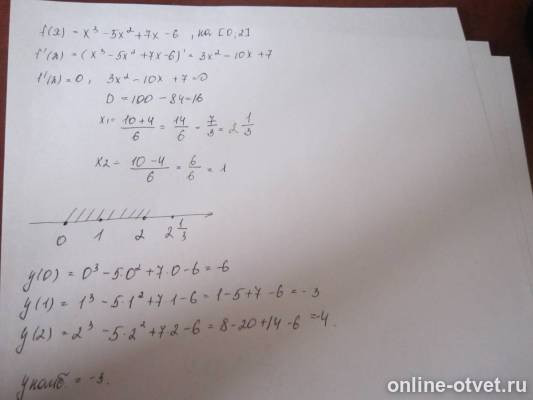 f(x) = x³ - 5x² + 7x - 6 , на [0; 2]
f'(x) = (x³ - 5x² + 7x - 6)' = 3x² - 10x + 7
f'(x) = 0, 3x² - 10x + 7 = 0
D = 100 - 84 = 16
x₁ = (10+4)/6 = 14/6 = 7/3 = 2 1/3
x₂ = (10-4)/6 = 6/6 = 1
0 1 2 2 1/3
y(0) = 0³ - 5·0² + 7·0 - 6 = -6
y(1) = 1³ - 5·1² + 7·1 - 6 = 1 - 5 + 7 - 6 = -3
y(2) = 2³ - 5·2² + 7·2 - 6 = 8 - 20 + 14 - 6 = -4.
y наиб. = -3.
online-otvet.ru